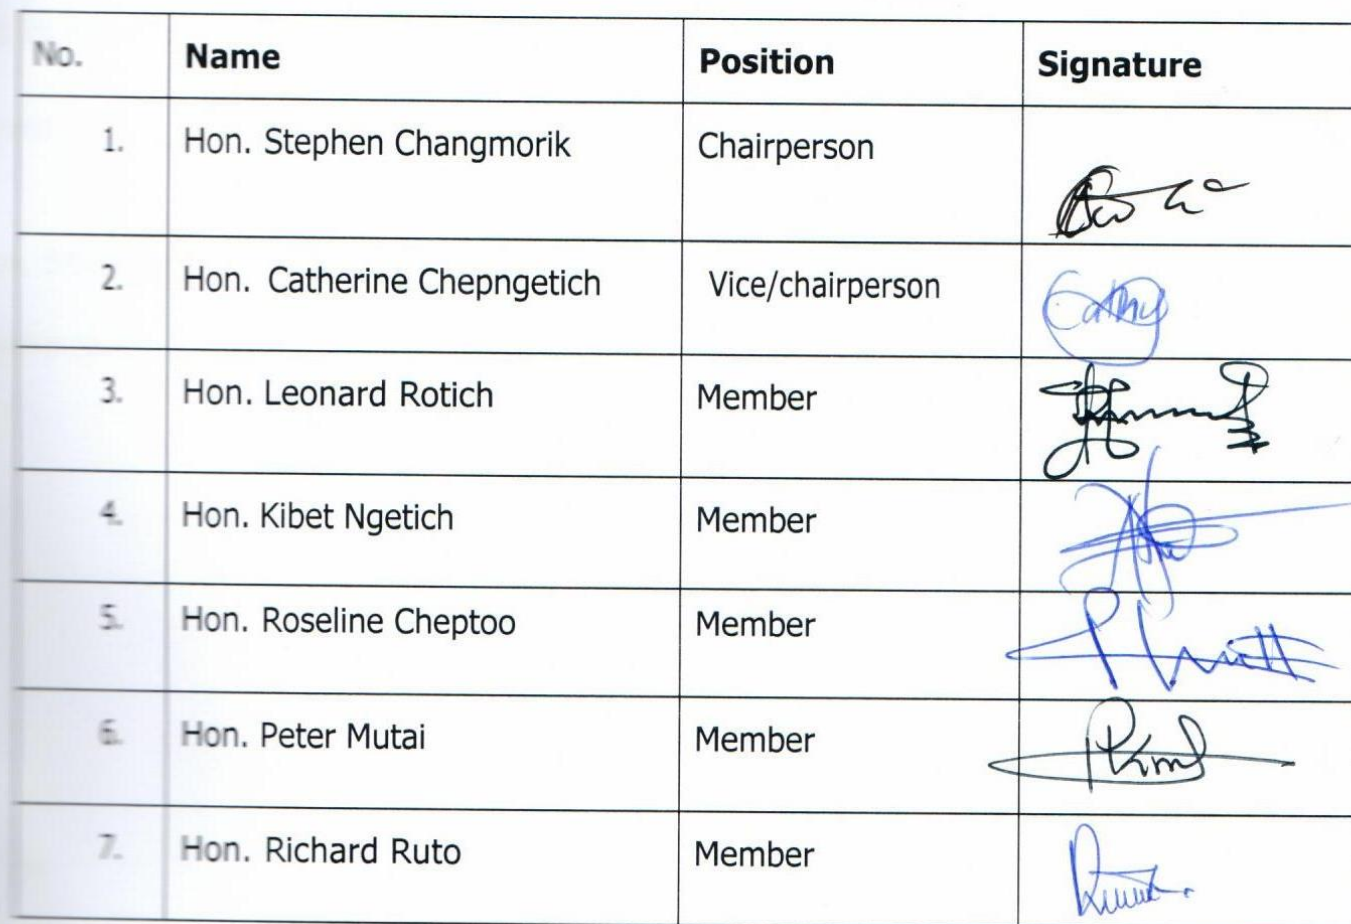 No. Name Position Signature
1. Hon. Stephen Changmorik Chairperson
2. Hon. Catherine Chepngetich Vice/chairperson Cathy
3. Hon. Leonard Rotich Member
4. Hon. Kibet Ngetich Member
5. Hon. Roseline Cheptoo Member
6. Hon. Peter Mutai Member
7. Hon. Richard Ruto Member